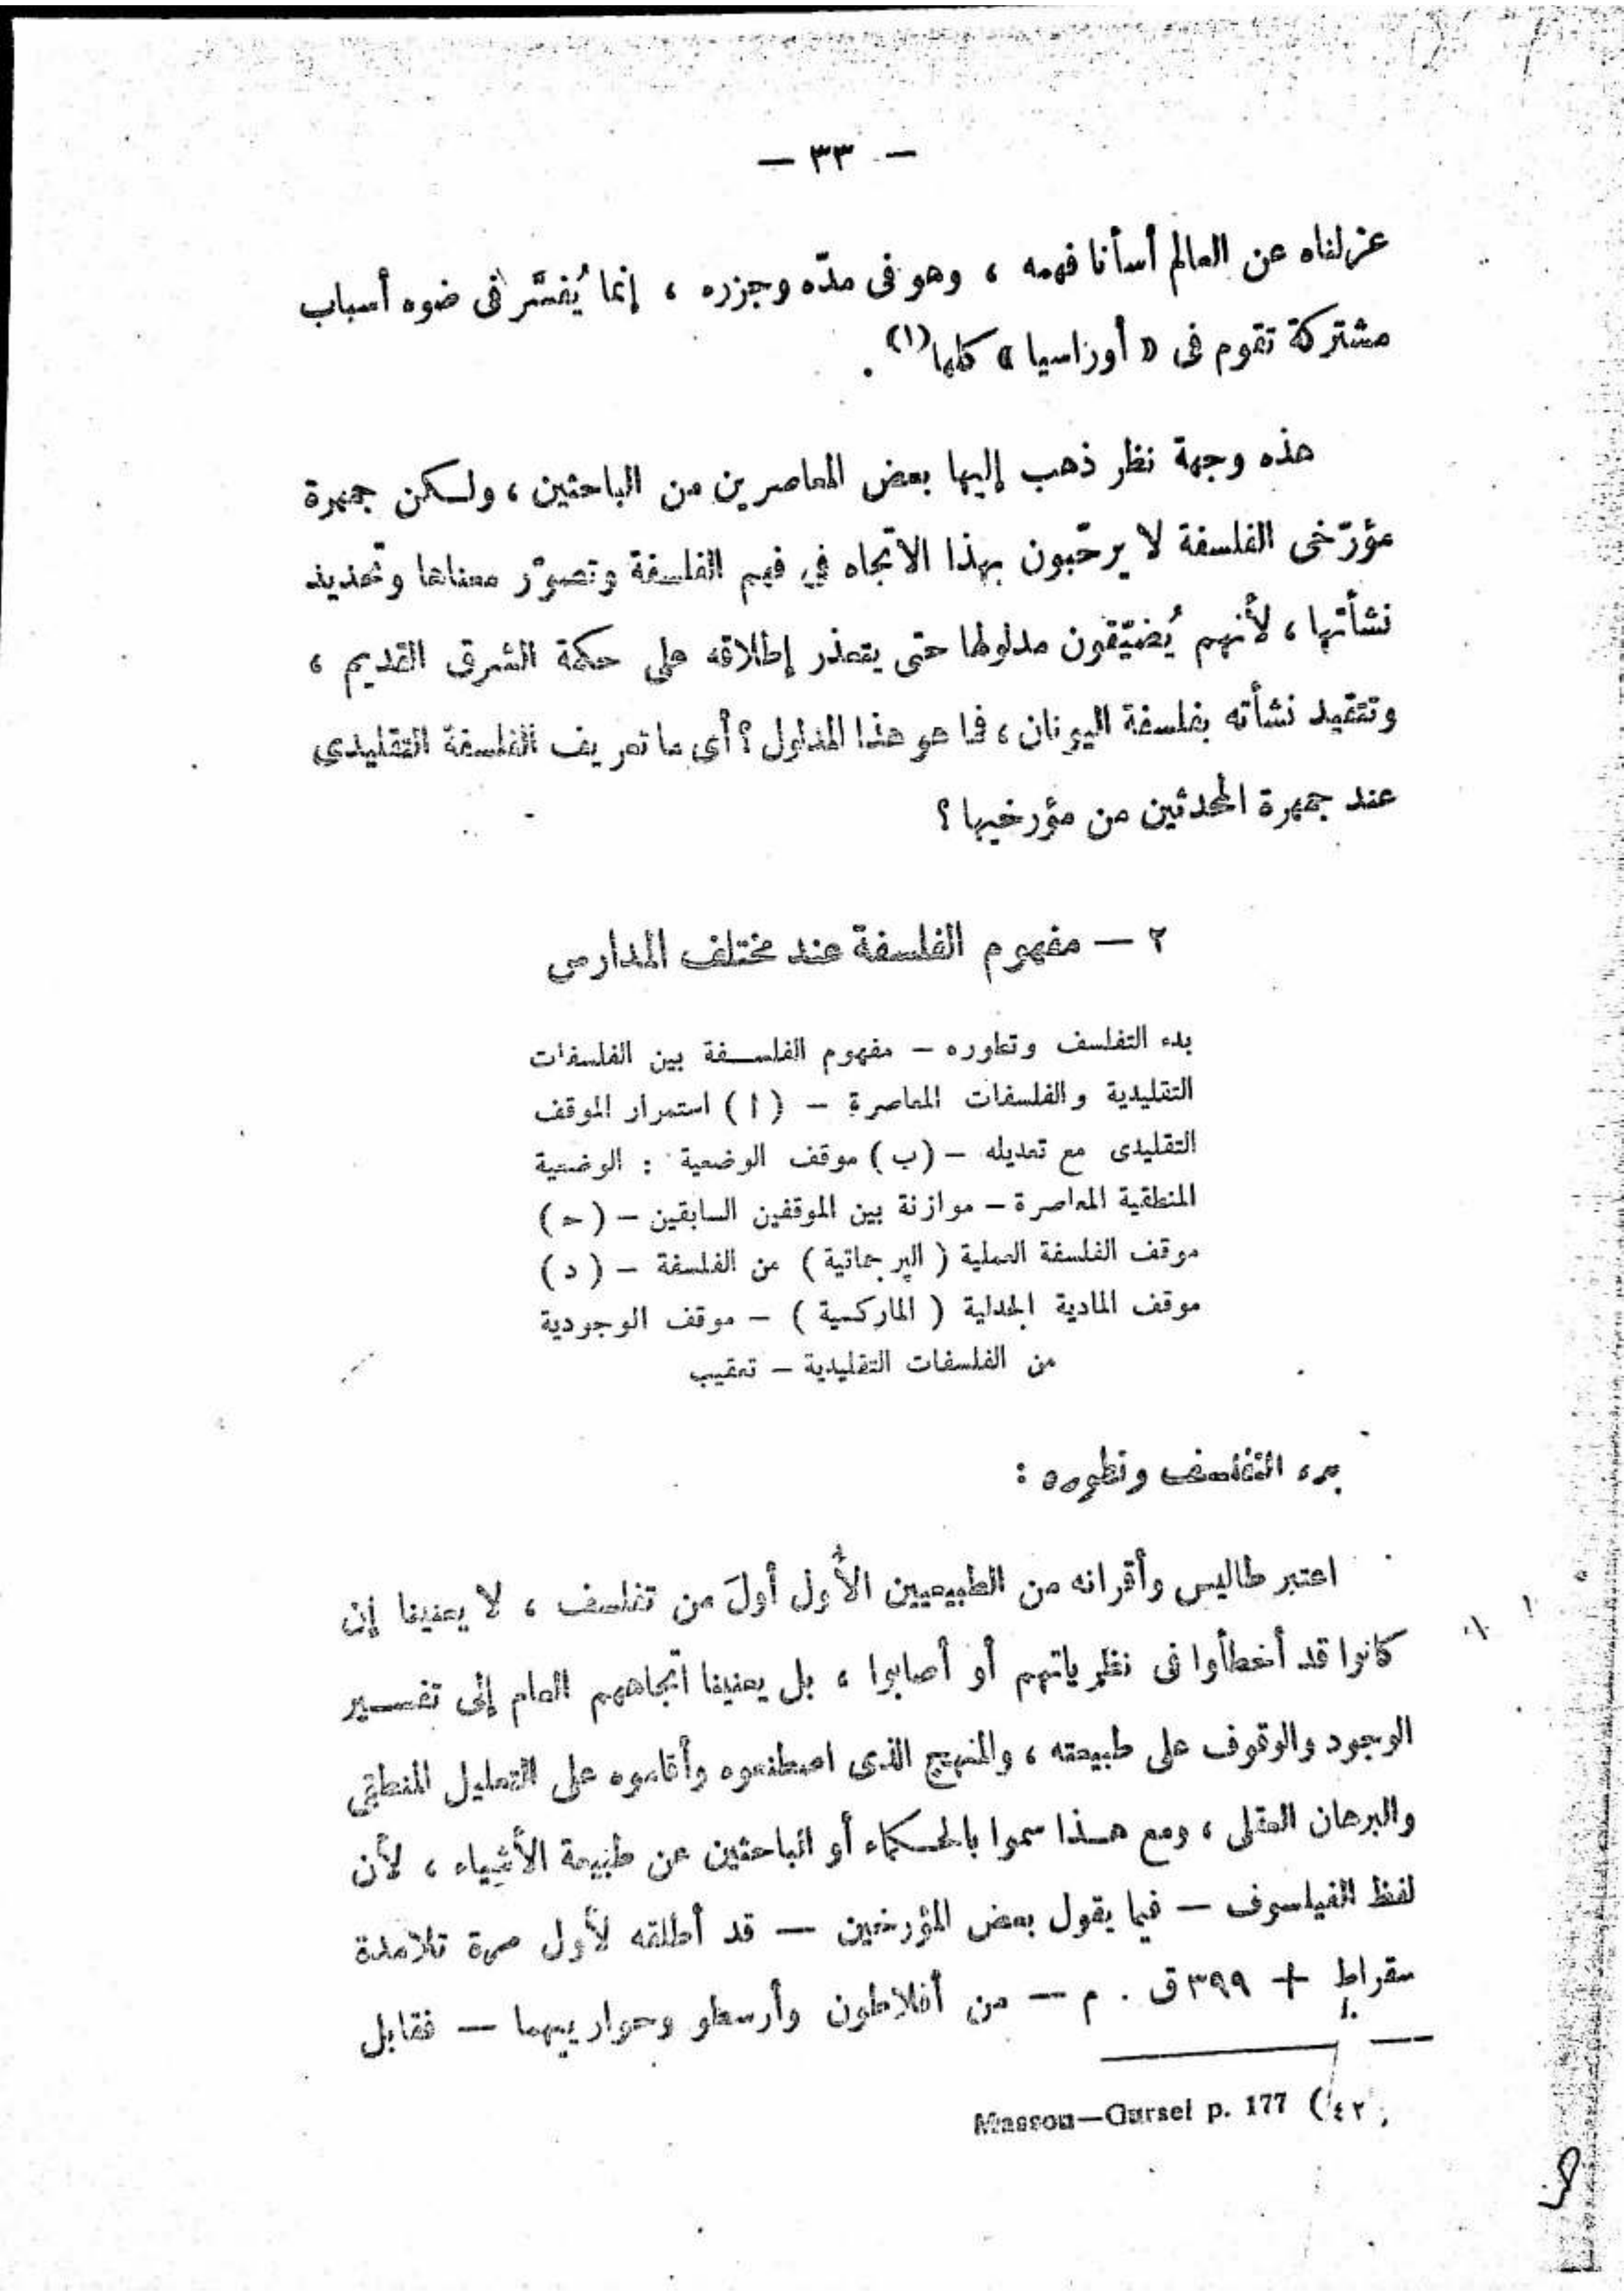 — ٣٣ —
عزلناه عن العالم أسأنا فهمه ، وهو فى مدّه وجزره ، إنما يُفسَّر فى ضوء أسباب
مشتركة تقوم فى « أوراسيا » كلها(١) .
هذه وجهة نظر ذهب إليها بعض المعاصرين من الباحثين ، ولكن جمهرة
مؤرّخى الفلسفة لا يرحّبون بهذا الاتجاه في فهم الفلسفة وتصوّر معناها وتحديد
نشأتها ، لأنهم يُضيّقون مدلولها حتى يتعذر إطلاقه على حكمة الشرق القديم ،
وتتقيد نشأته بفلسفة اليونان ، فما هو هذا المدلول ؟ أى ما تعريف الفلسفة التقليدى
عند جمهرة المحدثين من مؤرخيها ؟
٢ — مفهوم الفلسفة عند مختلف المدارس
بدء التفلسف وتطوره – مفهوم الفلسفة بين الفلسفات
التقليدية والفلسفات المعاصرة – ( ا ) استمرار الموقف
التقليدى مع تعديله – (ب) موقف الوضعية : الوضعية
المنطقية المعاصرة – موازنة بين الموقفين السابقين – ( ح )
موقف الفلسفة العملية ( البرجماتية ) من الفلسفة – ( د )
موقف المادية الجدلية ( الماركسية ) – موقف الوجودية
من الفلسفات التقليدية – تعقيب
بدء التفلسف وتطوره :
اعتبر طاليس وأقرانه من الطبيعيين الأُول أولَ من تفلسف ، لا يعنينا إن
كانوا قد أخطأوا فى نظرياتهم أو أصابوا ، بل يعنينا اتجاههم العام إلى تفسير
الوجود والوقوف على طبيعته ، والمنهج الذى اصطنعوه وأقاموه على التعليل المنطقى
والبرهان العقلى ، ومع هذا سموا بالحكماء أو الباحثين عن طبيعة الأشياء ، لأن
لفظ الفيلسوف — فيما يقول بعض المؤرخين — قد أطلقه لأول مرة تلامذة
سقراط + ٣٩٩ ق . م — من أفلاطون وأرسطو وحوارييهما — فقابل
Masson—Oursel p. 177 (٤٢)